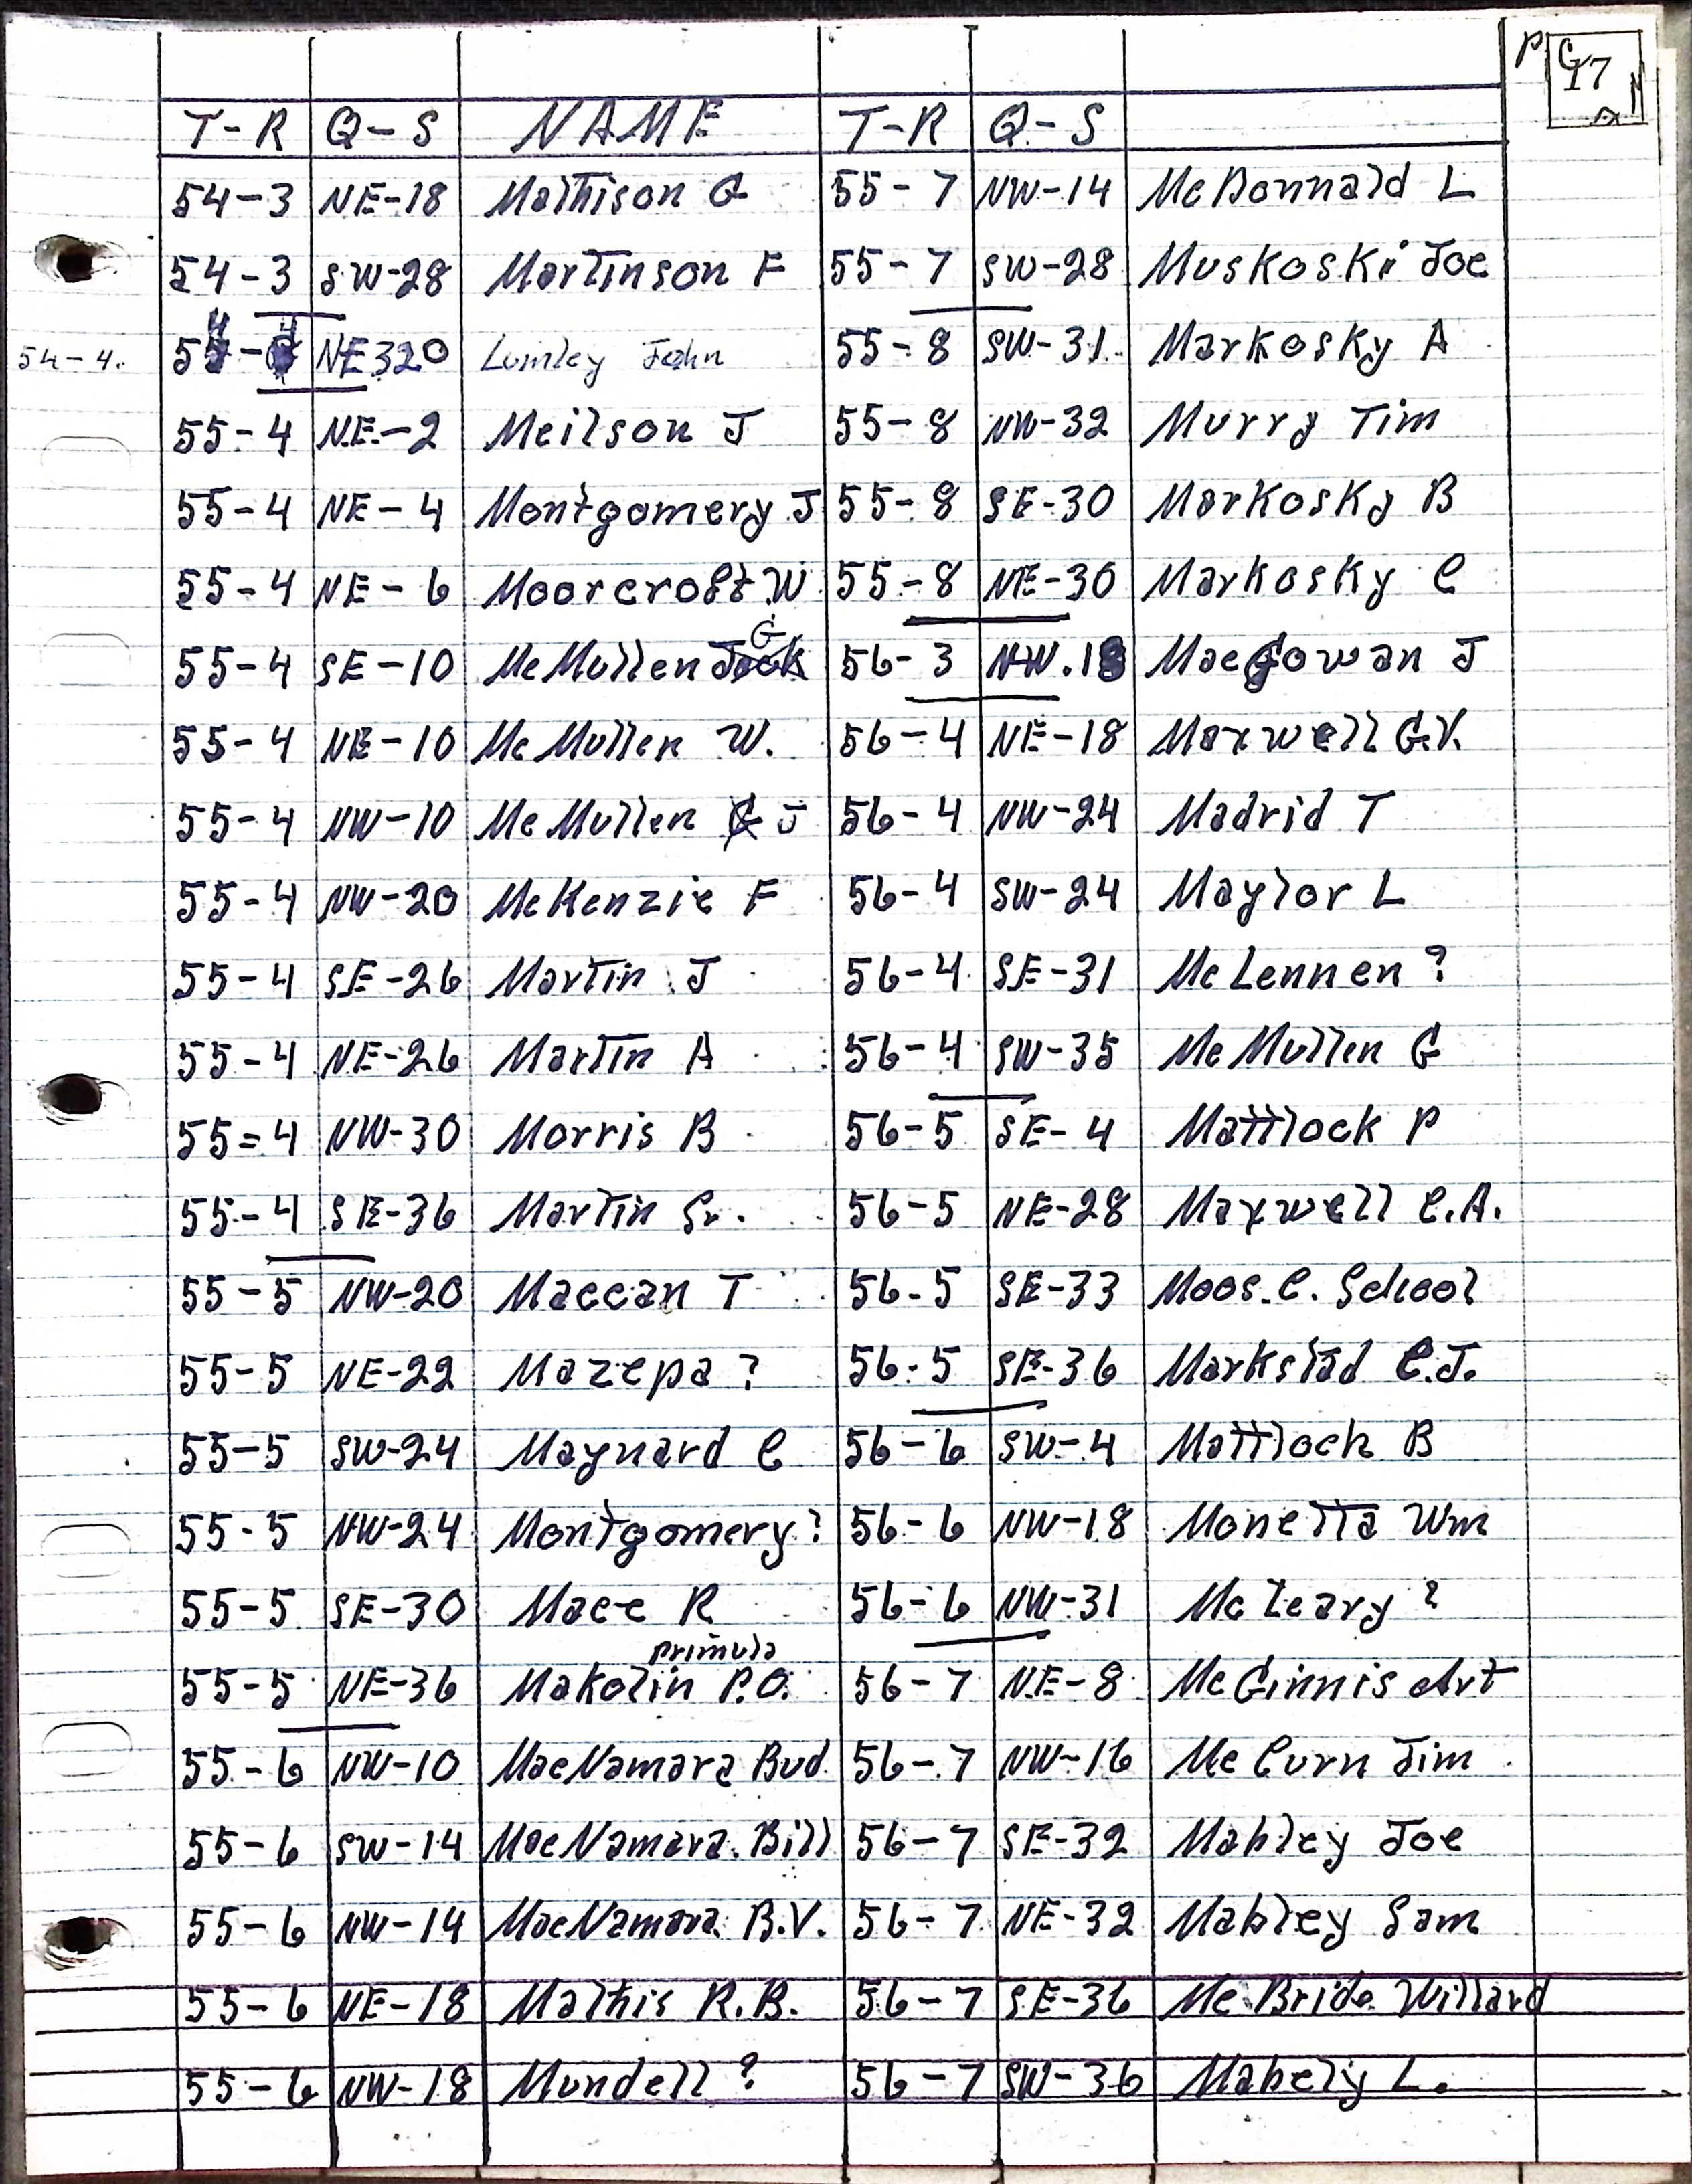 P G 17
T-R Q-S NAME T-R Q-S
54-3 NE-18 Mathison G 55-7 NW-14 McDonnald L
54-3 SW-28 Martinson F 55-7 SW-28 Muskoski Joe
54-4. 54-4 NE320 Lumley John 55-8 SW-31 Markosky A
55-4 NE-2 Meilson J 55-8 NW-32 Murry Tim
55-4 NE-4 Montgomery J 55-8 SE-30 Markosky B
55-4 NE-6 Moorcroft W 55-8 NE-30 Markosky C
55-4 SE-10 McMullen Jack G 56-3 NW.18 MacGowan J
55-4 NE-10 McMullen W. 56-4 NE-18 Maxwell G.V.
55-4 NW-10 McMullen G J 56-4 NW-24 Madrid T
55-4 NW-20 McKenzie F 56-4 SW-24 Maylor L
55-4 SE-26 Martin J 56-4 SE-31 McLennen ?
55-4 NE-26 Martin A 56-4 SW-35 McMullen G
55=4 NW-30 Morris B 56-5 SE-4 Mattlock P
55-4 SE-36 Martin Sr. 56-5 NE-28 Maxwell C.A.
55-5 NW-20 Maccan T 56-5 SE-33 Moos.C. School
55-5 NE-22 Mazepa ? 56-5 SE-36 Markstad C.J.
55-5 SW-24 Maynard C 56-6 SW-4 Mattlock B
55-5 NW-24 Montgomery ? 56-6 NW-18 Monetta Wm
55-5 SE-30 Mace R 56-6 NW-31 McLeary ?
primula
55-5 NE-36 Makolin P.O. 56-7 NE-8 McGinnis Art
55-6 NW-10 MacNamara Bud 56-7 NW-16 McCurn Jim
55-6 SW-14 MacNamara Bill 56-7 SE-32 Mabley Joe
55-6 NW-14 MacNamara B.V. 56-7 NE-32 Mabley Sam
55-6 NE-18 Mathis R.B. 56-7 SE-36 McBride Willard
55-6 NW-18 Mundell ? 56-7 SW-36 Mabely L.